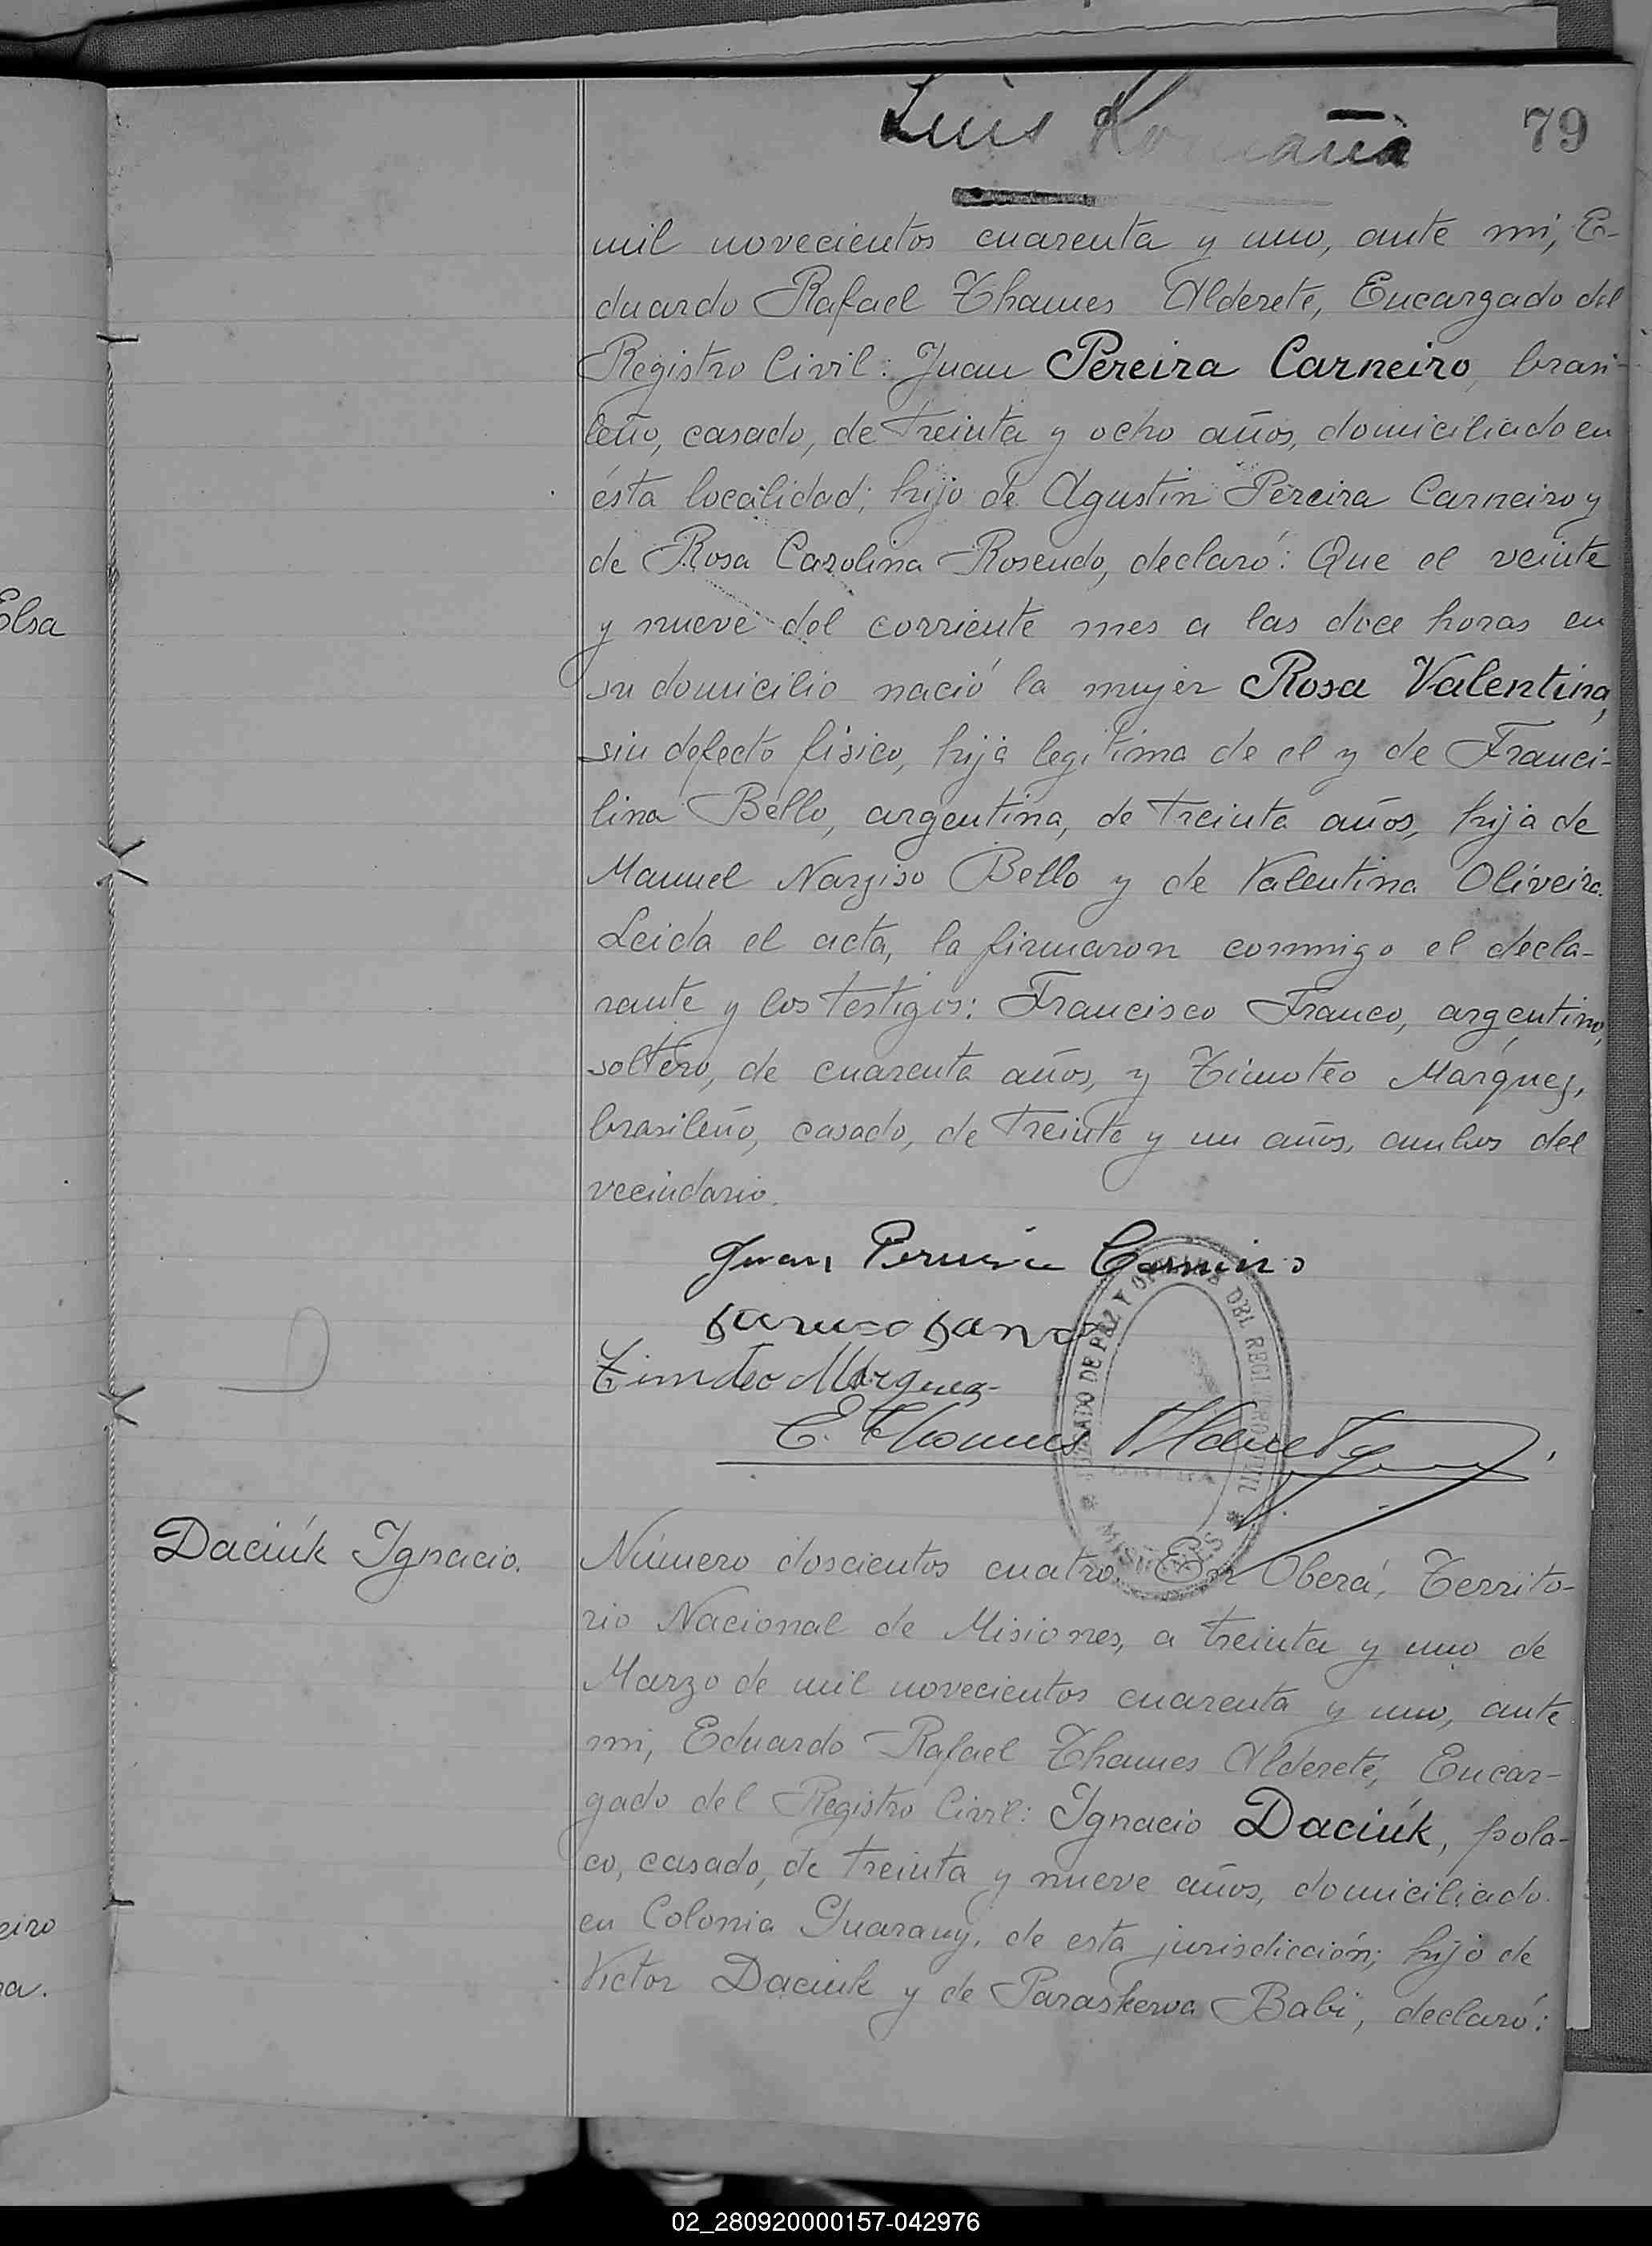 Luis
79
mil novecientos cuarenta y uno, ante mi, E-
duardo Rafael Thames Alderete, Encargado del
Registro Civil: Juan Pereira Carneiro, brasi-
leño, casado, de treinta y ocho años, domiciliado en
ésta localidad; hijo de Agustin Pereira Carneiro y
de Rosa Carolina Rosendo, declaró: Que el veinte
y nueve del corriente mes a las doce horas en
su domicilio nació la mujer Rosa Valentina,
sin defecto físico, hija legitima de el y de Franci-
lina Bello, argentina, de treinta años, hija de
Manuel Narziso Bello y de Valentina Oliveira.
Leida el acta, la firmaron conmigo el decla-
rante y los testigos: Francisco Franco, argentino,
soltero, de cuarenta años, y Timoteo Márquez,
brasileño, casado, de treinta y un años, ambos del
vecindario.
Juan Pereira Carneiro
Timoteo Marquez
E. Thames Alderete
JUZGADO DE PAZ Y OFICINA DEL REGISTRO CIVIL
OBERA
MISIONES
Daciúk Ignacio.
Número doscientos cuatro. En Oberá, Territo-
rio Nacional de Misiones, a treinta y uno de
Marzo de mil novecientos cuarenta y uno, ante
mi, Eduardo Rafael Thames Alderete, Encar-
gado del Registro Civil: Ignacio Daciúk, pola-
co, casado, de treinta y nueve años, domiciliado
en Colonia Guarany, de esta jurisdicción; hijo de
Victor Daciuk y de Paraskewa Babi, declaró:
Elsa
eiro
a.
02_280920000157-042976